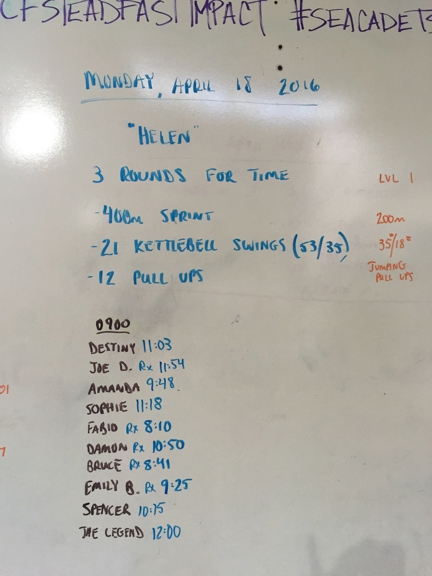 CFSTEADFAST IMPACT #SEACADETS
MONDAY, APRIL 18 2016
"HELEN"
3 ROUNDS FOR TIME
LVL 1
-400m SPRINT
200m
-21 KETTLEBELL SWINGS (53/35)
35#/18#
-12 PULL UPS
JUMPING
PULL UPS
0900
DESTINY 11:03
JOE D. Rx 11:54
AMANDA 9:48
SOPHIE 11:18
FABIO Rx 8:10
DAMON Rx 10:50
BRUCE Rx 8:41
EMILY B. Rx 9:25
SPENCER 10:15
THE LEGEND 12:00